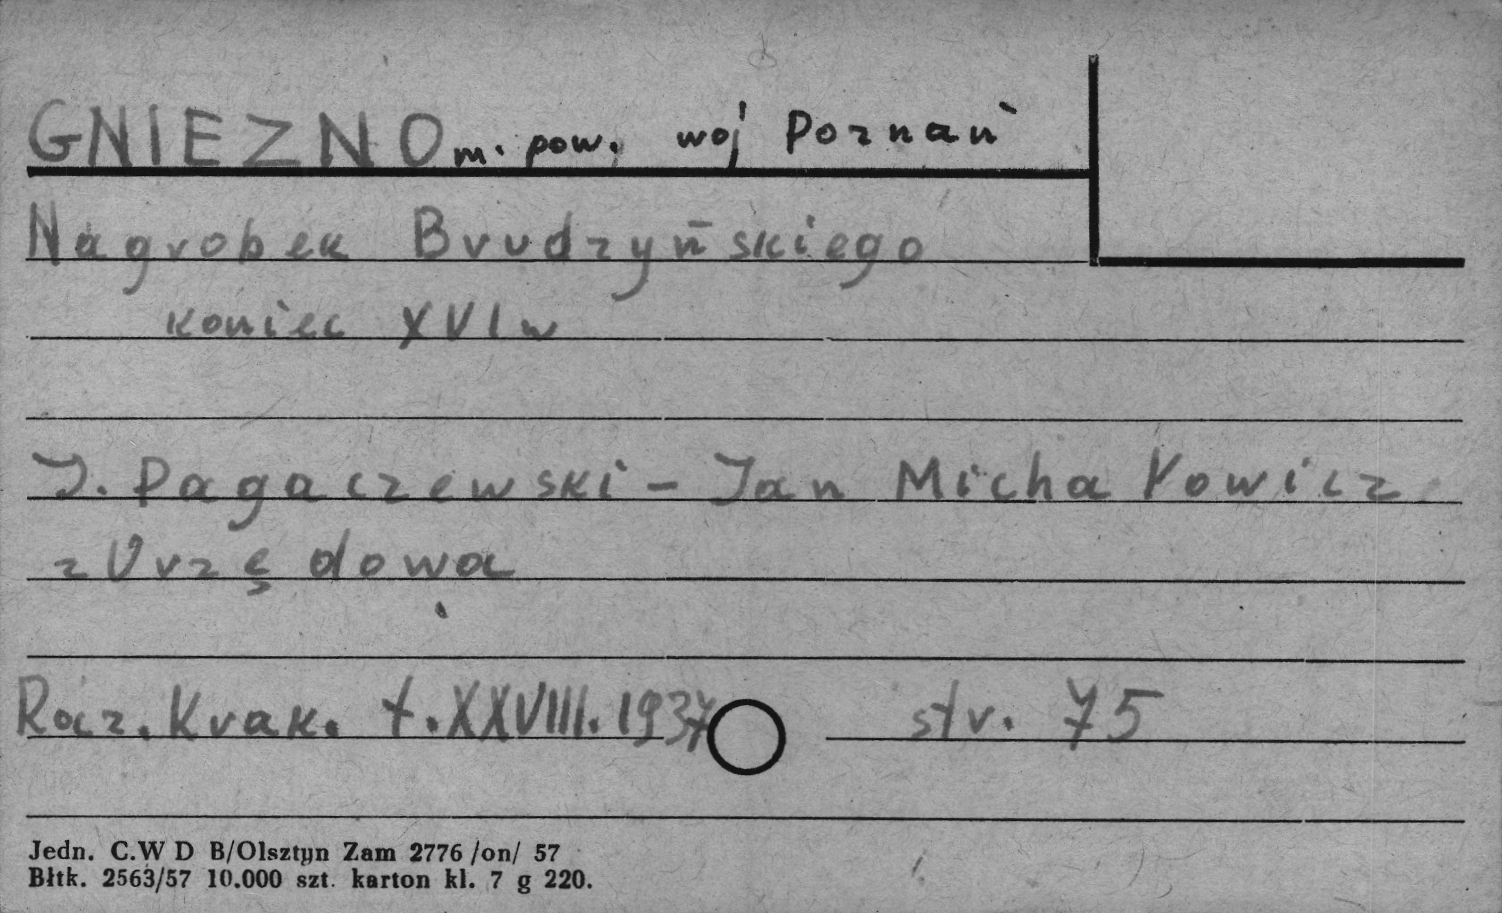 GNIEZNO m. pow. woj Poznań
Nagrobek Brudzyńskiego
koniec XVI w
J. Pagaczewski - Jan Michałowicz
z Urzędowa
Rocz. Krak. t. XXVIII. 1937 str. 75
Jedn. C.W D B/Olsztyn Zam 2776 /on/ 57
Błtk. 2563/57 10.000 szt. karton kl. 7 g 220.